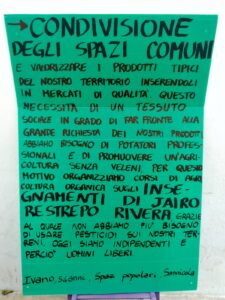 →CONDIVISIONE
DEGLI SPAZI COMUNI
E VALORIZZARE I PRODOTTI TIPICI
DEL NOSTRO TERRITORIO INSERENDOLI
IN MERCATI DI QUALITA'. QUESTO
NECESSITA DI UN TESSUTO
SOCIALE IN GRADO DI FAR FRONTE ALLA
GRANDE RICHIESTA DEI NOSTRI PRODOTTI
ABBIAMO BISOGNO DI POTATORI PROFES-
SIONALI E DI PROMUOVERE UN'AGRI-
COLTURA SENZA VELENI, PER QUESTO
MOTIVO ORGANIZZIAMO CORSI DI AGRI
COLTURA ORGANICA SUGLI INSE-
GNAMENTI DI JAIRO
RESTREPO RIVERA GRAZIE
AL QUALE NON ABBIAMO PIU' BISOGNO
DI USARE PESTICIDI SUI NOSTRI TER-
RENI. OGGI SIAMO INDIPENDENTI E
PERCIO' UOMINI LIBERI.
Ivano, Spazi popolari, Sannicola